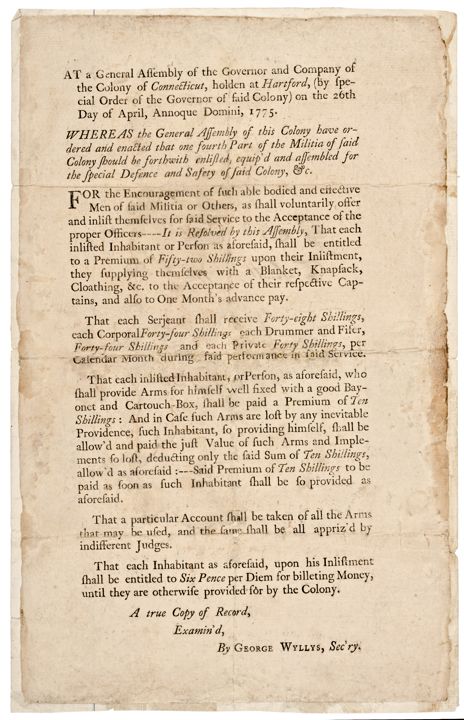 AT a General Aſſembly of the Governor and Company of
the Colony of Connecticut, holden at Hartford, (by ſpe-
cial Order of the Governor of ſaid Colony) on the 26th
Day of April, Annoque Domini, 1775.
WHEREAS the General Aſſembly of this Colony have or-
dered and enacted that one fourth Part of the Militia of ſaid
Colony ſhould be forthwith enliſted, equip'd and aſſembled for
the ſpecial Defence and Safety of ſaid Colony, &c.
FOR the Encouragement of ſuch able bodied and effective
Men of ſaid Militia or Others, as ſhall voluntarily offer
and inliſt themſelves for ſaid Service to the Acceptance of the
proper Officers----It is Reſolved by this Aſſembly, That each
inliſted Inhabitant or Perſon as aforeſaid, ſhall be entitled
to a Premium of Fifty-two Shillings upon their Inliſtment,
they ſupplying themſelves with a Blanket, Knapſack,
Cloathing, &c. to the Acceptance of their reſpective Cap-
tains, and alſo to One Month's advance pay.
That each Serjeant ſhall receive Forty-eight Shillings,
each Corporal Forty-four Shillings each Drummer and Fifer,
Forty-four Shillings and each Private Forty Shillings, per
Calendar Month during ſaid performance in ſaid Service.
That each inliſted Inhabitant, or Perſon, as aforeſaid, who
ſhall provide Arms for himſelf well fixed with a good Bay-
onet and Cartouch-Box, ſhall be paid a Premium of Ten
Shillings: And in Caſe ſuch Arms are loſt by any inevitable
Providence, ſuch Inhabitant, ſo providing himſelf, ſhall be
allow'd and paid the juſt Value of ſuch Arms and Imple-
ments ſo loſt, deducting only the ſaid Sum of Ten Shillings,
allow'd as aforeſaid:---Said Premium of Ten Shillings to be
paid as ſoon as ſuch Inhabitant ſhall be ſo provided as
aforeſaid.
That a particular Account ſhall be taken of all the Arms
that may be uſed, and the ſame ſhall be all appriz'd by
indifferent Judges.
That each Inhabitant as aforeſaid, upon his Inliſtment
ſhall be entitled to Six Pence per Diem for billeting Money,
until they are otherwiſe provided for by the Colony.
A true Copy of Record,
Examin'd,
By GEORGE WYLLYS, Sec'ry.